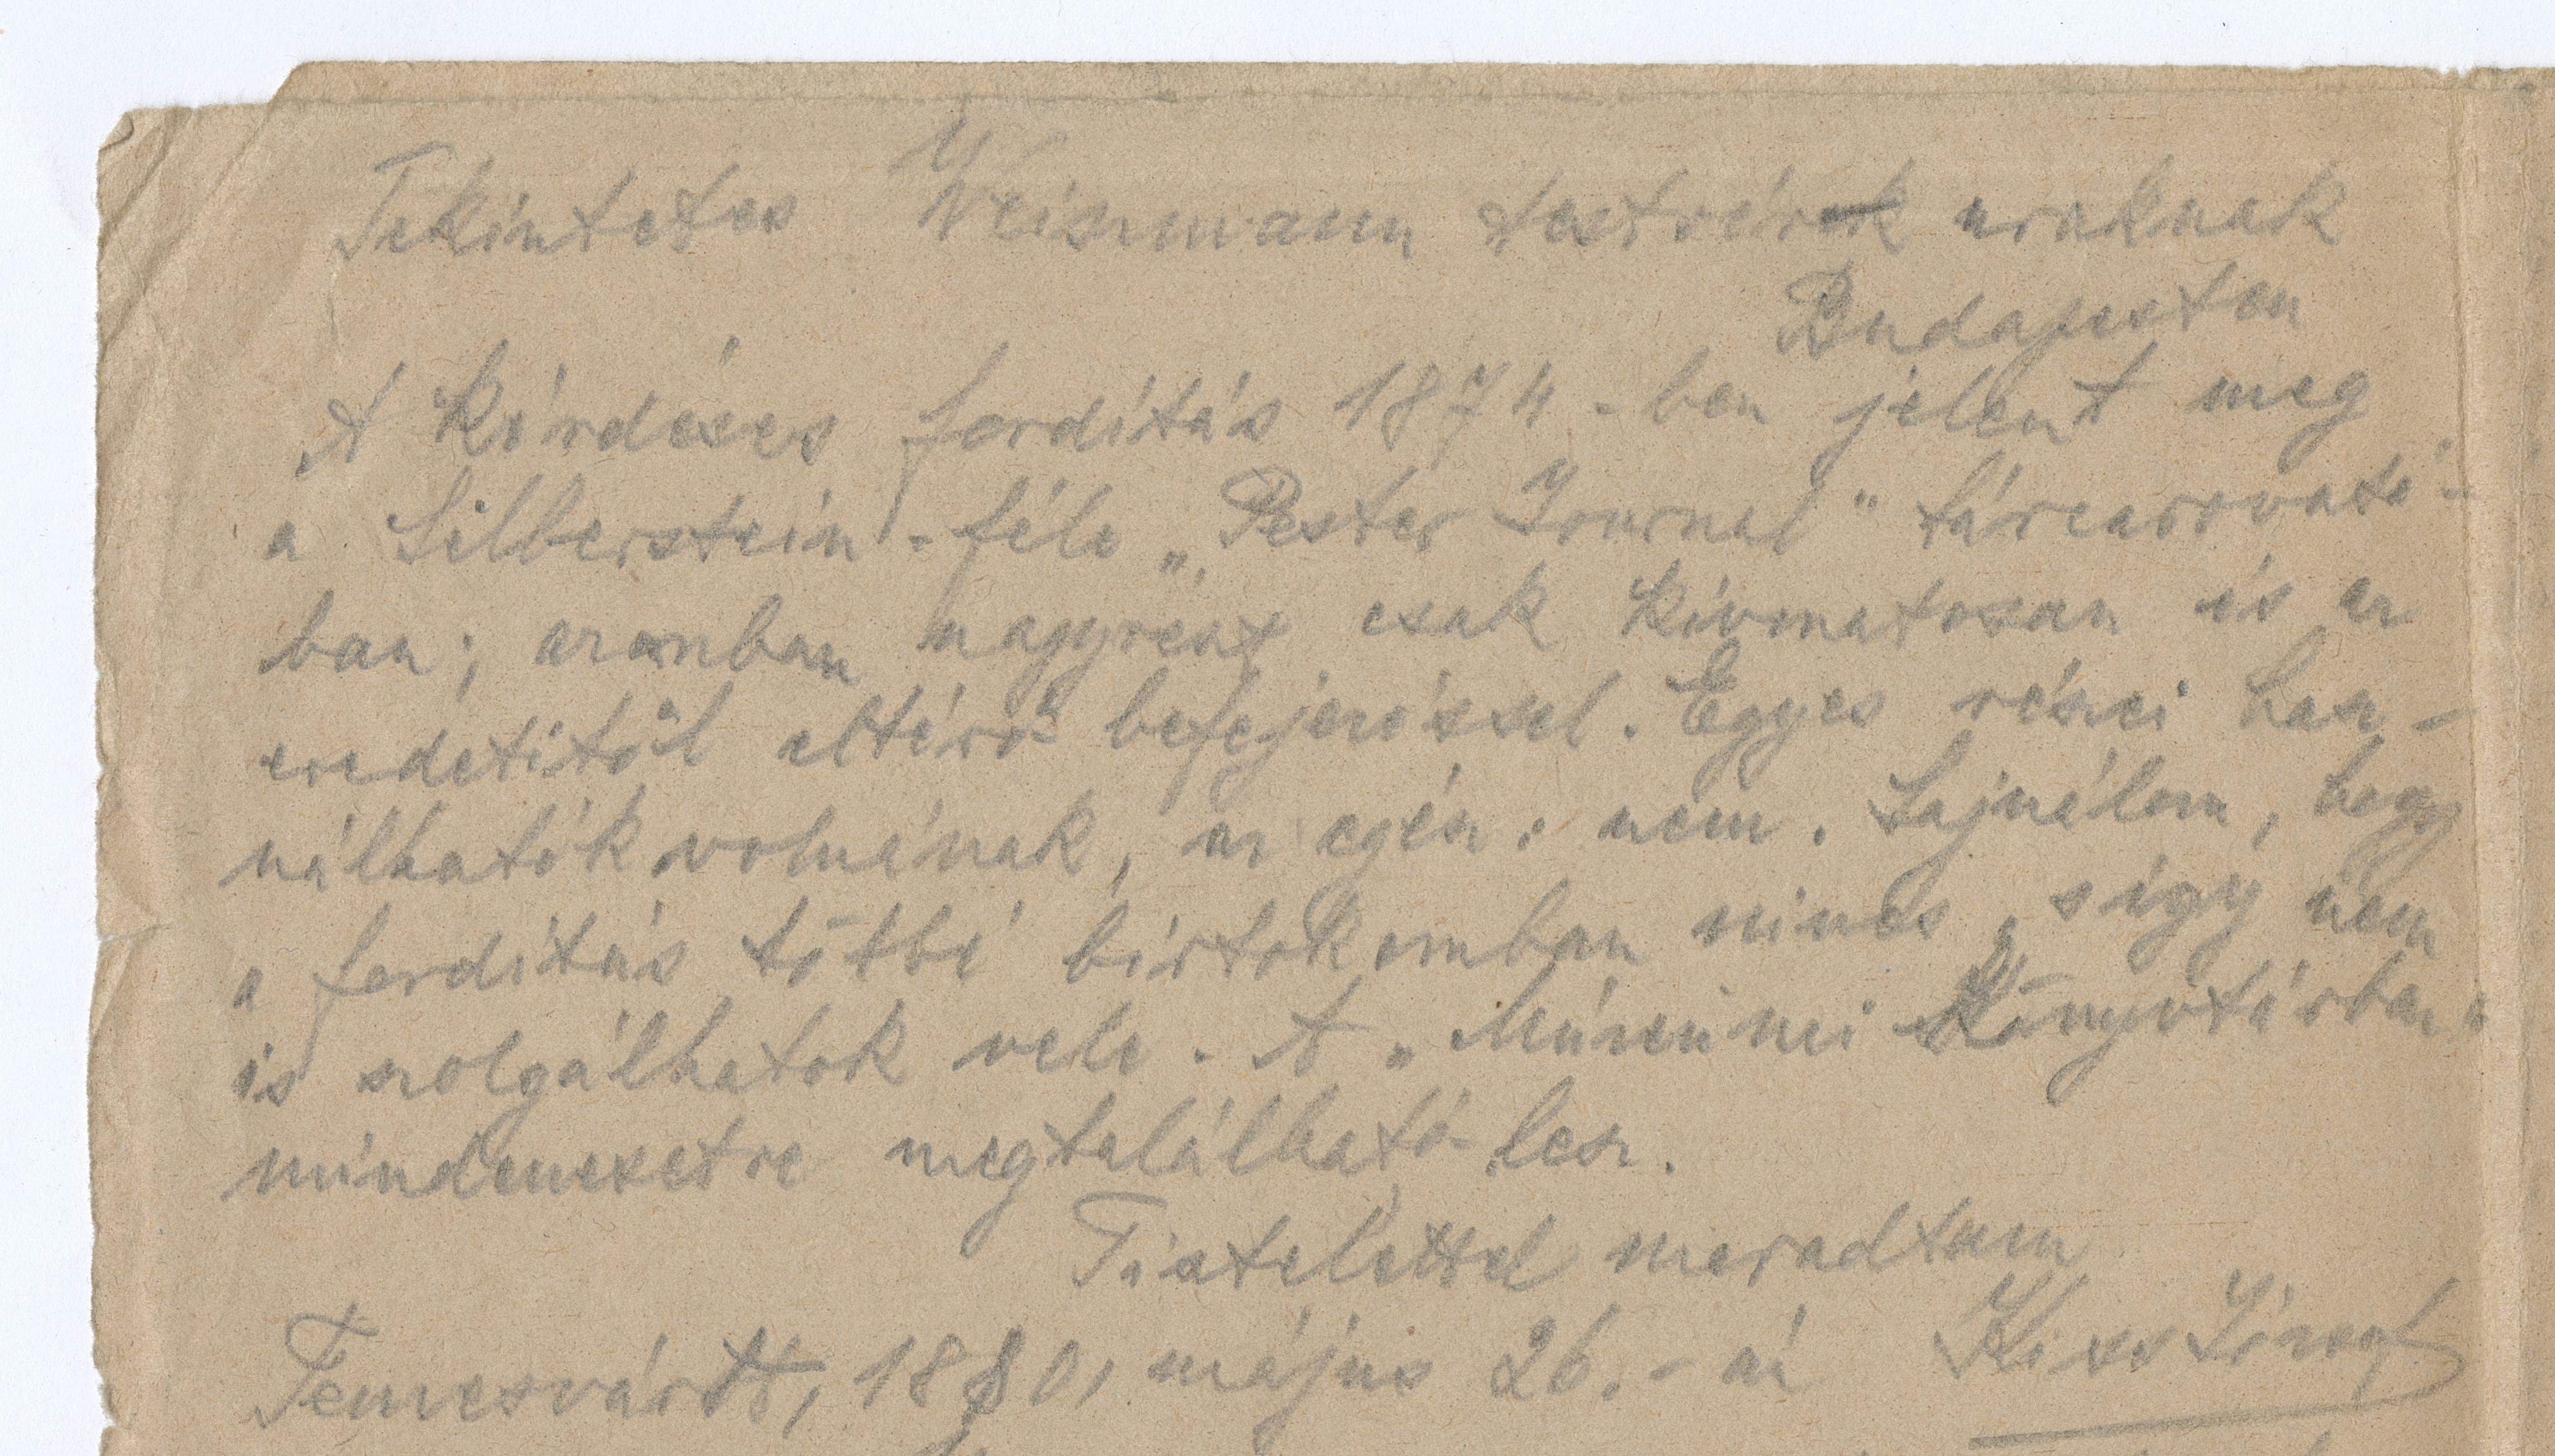 Tekintetes Weiszmann testvérek uraknak
Budapesten
A kérdéses fordítás 1874-ben jelent meg
a Silberstein-féle „Pester Journal" tárcarovatá-
ban; azonban nagyrészt csak kivonatosan és az
eredetitől eltérő befejezéssel. Egyes részei hasz-
nálhatók volnának, az egész: nem. Sajnálom, hogy
a fordítás többé birtokomban nincs, s így nem
is szolgálhatok vele. A „Múzeumi Könyvtárban"
mindenesetre megtalálható lesz.
Tisztelettel maradtam
Temesvártt, 1880, május 26.-án Kiss József